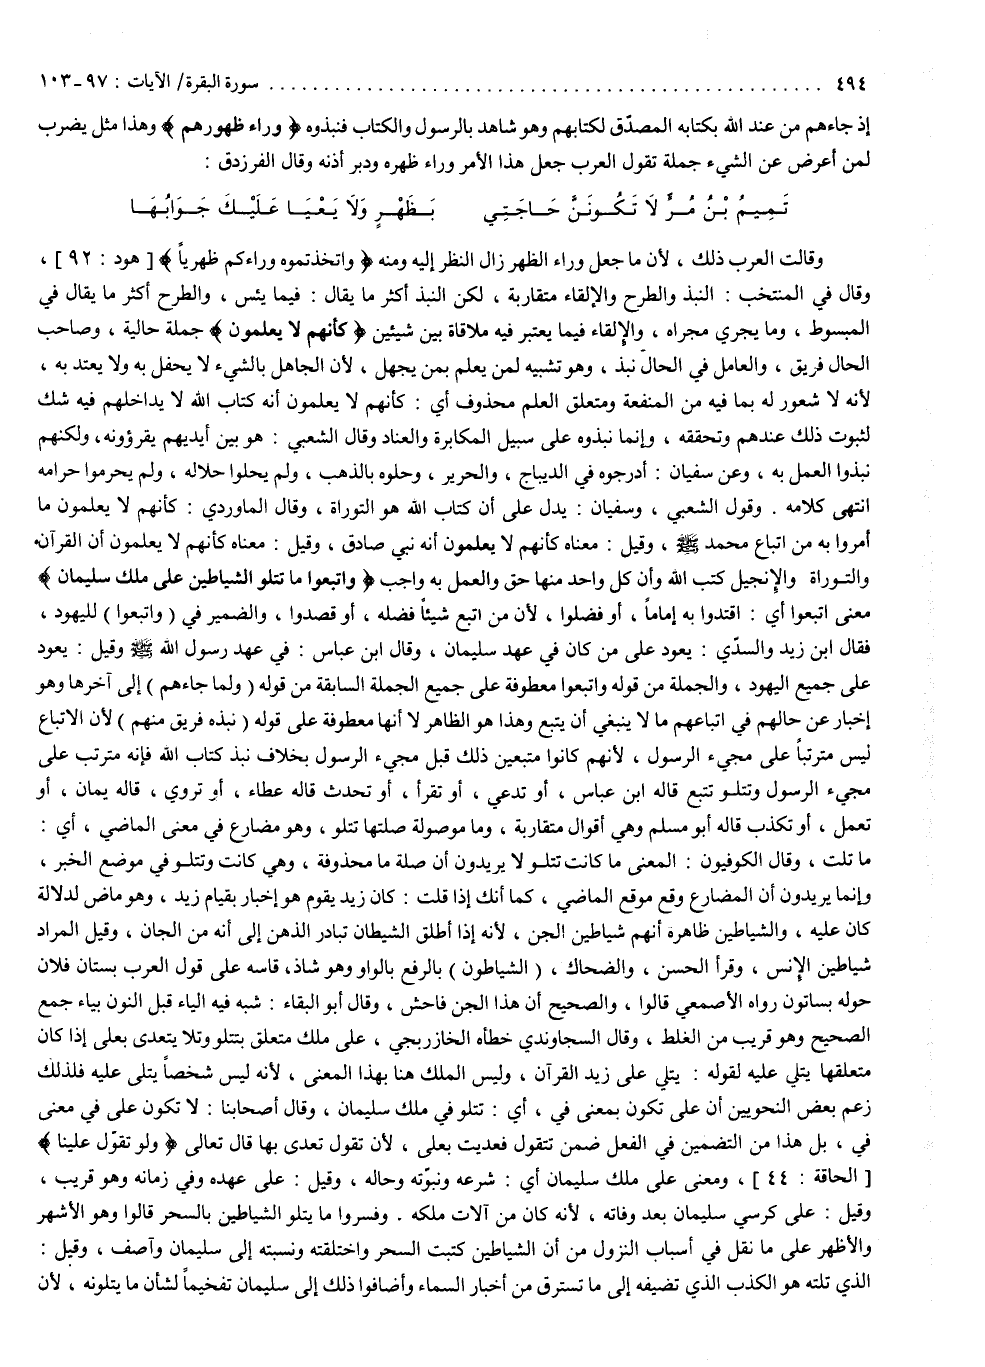 ٤٩٤ ........................................ سورة البقرة/ الآيات : ٩٧ـ١٠٣
إذ جاءهم من عند الله بكتابه المصدّق لكتابهم وهو شاهد بالرسول والكتاب فنبذوه ﴿ وراء ظهورهم ﴾ وهذا مثل يضرب
لمن أعرض عن الشيء جملة تقول العرب جعل هذا الأمر وراء ظهره ودبر أذنه وقال الفرزدق :
تَمِيمُ بْنُ مُرٍّ لَا تَكُونَنَّ حَاجَتِي بَظَهْرٍ وَلَا يَعْيَا عَلَيْكَ جَوَابُهَا
وقالت العرب ذلك ، لأن ما جعل وراء الظهر زال النظر إليه ومنه ﴿ واتخذتموه وراءكم ظهرياً ﴾ [ هود : ٩٢ ] ،
وقال في المنتخب : النبذ والطرح والإلقاء متقاربة ، لكن النبذ أكثر ما يقال : فيما يئس ، والطرح أكثر ما يقال في
المبسوط ، وما يجري مجراه ، والإلقاء فيما يعتبر فيه ملاقاة بين شيئين ﴿ كأنهم لا يعلمون ﴾ جملة حالية ، وصاحب
الحال فريق ، والعامل في الحال نبذ ، وهو تشبيه لمن يعلم بمن يجهل ، لأن الجاهل بالشيء لا يحفل به ولا يعتد به ،
لأنه لا شعور له بما فيه من المنفعة ومتعلق العلم محذوف أي : كأنهم لا يعلمون أنه كتاب الله لا يداخلهم فيه شك
لثبوت ذلك عندهم وتحققه ، وإنما نبذوه على سبيل المكابرة والعناد وقال الشعبي : هو بين أيديهم يقرؤونه، ولكنهم
نبذوا العمل به ، وعن سفيان : أدرجوه في الديباج ، والحرير ، وحلوه بالذهب ، ولم يحلوا حلاله ، ولم يحرموا حرامه
انتهى كلامه . وقول الشعبي ، وسفيان : يدل على أن كتاب الله هو التوراة ، وقال الماوردي : كأنهم لا يعلمون ما
أمروا به من اتباع محمد ﷺ ، وقيل : معناه كأنهم لا يعلمون أنه نبي صادق ، وقيل : معناه كأنهم لا يعلمون أن القرآن
والتوراة والإنجيل كتب الله وأن كل واحد منها حق والعمل به واجب ﴿ واتبعوا ما تتلو الشياطين على ملك سليمان ﴾
معنى اتبعوا أي : اقتدوا به إماماً ، أو فضلوا ، لأن من اتبع شيئاً فضله ، أو قصدوا ، والضمير في ( واتبعوا ) لليهود ،
فقال ابن زيد والسدّي : يعود على من كان في عهد سليمان ، وقال ابن عباس : في عهد رسول الله ﷺ وقيل : يعود
على جميع اليهود ، والجملة من قوله واتبعوا معطوفة على جميع الجملة السابقة من قوله ( ولما جاءهم ) إلى آخرها وهو
إخبار عن حالهم في اتباعهم ما لا ينبغي أن يتبع وهذا هو الظاهر لا أنها معطوفة على قوله ( نبذه فريق منهم ) لأن الاتباع
ليس مترتباً على مجيء الرسول ، لأنهم كانوا متبعين ذلك قبل مجيء الرسول بخلاف نبذ كتاب الله فإنه مترتب على
مجيء الرسول وتتلو تتبع قاله ابن عباس ، أو تدعي ، أو تقرأ ، أو تحدث قاله عطاء ، أو تروي ، قاله يمان ، أو
تعمل ، أو تكذب قاله أبو مسلم وهي أقوال متقاربة ، وما موصولة صلتها تتلو ، وهو مضارع في معنى الماضي ، أي :
ما تلت ، وقال الكوفيون : المعنى ما كانت تتلو لا يريدون أن صلة ما محذوفة ، وهي كانت وتتلو في موضع الخبر ،
وإنما يريدون أن المضارع وقع موقع الماضي ، كما أنك إذا قلت : كان زيد يقوم هو إخبار بقيام زيد ، وهو ماض لدلالة
كان عليه ، والشياطين ظاهرة أنهم شياطين الجن ، لأنه إذا أطلق الشيطان تبادر الذهن إلى أنه من الجان ، وقيل المراد
شياطين الإنس ، وقرأ الحسن ، والضحاك ، ( الشياطون ) بالرفع بالواو وهو شاذ، قاسه على قول العرب بستان فلان
حوله بساتون رواه الأصمعي قالوا ، والصحيح أن هذا الجن فاحش ، وقال أبو البقاء : شبه فيه الياء قبل النون بياء جمع
الصحيح وهو قريب من الغلط ، وقال السجاوندي خطأه الخازربجي ، على ملك متعلق بتتلو وتلا يتعدى بعلى إذا كان
متعلقها يتلي عليه لقوله : يتلي على زيد القرآن ، وليس الملك هنا بهذا المعنى ، لأنه ليس شخصاً يتلى عليه فلذلك
زعم بعض النحويين أن على تكون بمعنى في ، أي : تتلو في ملك سليمان ، وقال أصحابنا : لا تكون على في معنى
في ، بل هذا من التضمين في الفعل ضمن تتقول فعديت بعلى ، لأن تقول تعدى بها قال تعالى ﴿ ولو تقوّل علينا ﴾
[ الحاقة : ٤٤ ] ، ومعنى على ملك سليمان أي : شرعه ونبوّته وحاله ، وقيل : على عهده وفي زمانه وهو قريب ،
وقيل : على كرسي سليمان بعد وفاته ، لأنه كان من آلات ملكه . وفسروا ما يتلو الشياطين بالسحر قالوا وهو الأشهر
والأظهر على ما نقل في أسباب النزول من أن الشياطين كتبت السحر واختلقته ونسبته إلى سليمان وآصف ، وقيل :
الذي تلته هو الكذب الذي تضيفه إلى ما تسترق من أخبار السماء وأضافوا ذلك إلى سليمان تفخيماً لشأن ما يتلونه ، لأن